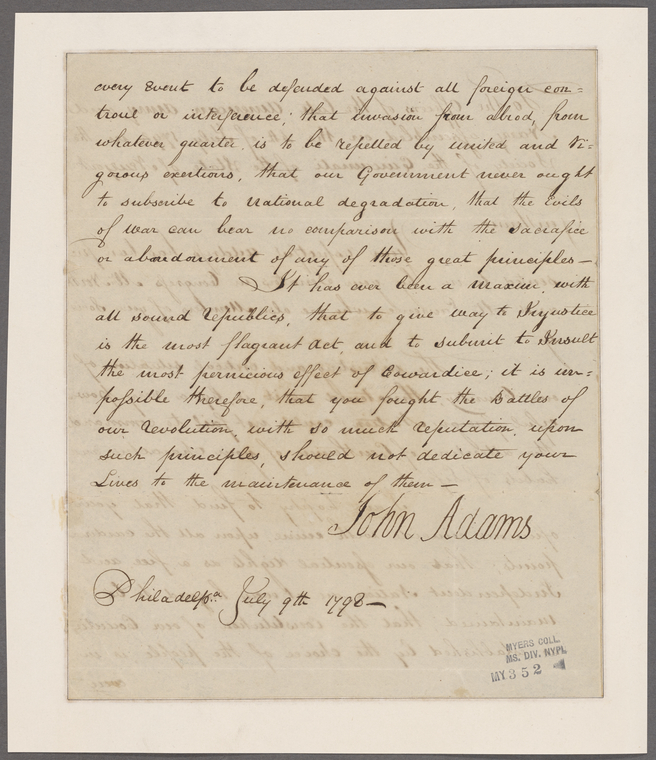 every Event to be defended against all foreign con=
troul or interference; that invasion from abrod, from
whatever quarter is to be repelled by united and Vi-
gorous exertions, that our Government never ought
to subscribe to national degradation, that the Evils
of war can bear no comparison with the Sacrafice
or abandonment of any of those great principles—
It has ever been a maxim, with
all sound republics, that to give way to Injustice
is the most flagrant Act, and to submit to Insult
the most pernicious effect of Cowardice; it is im=
possible therefore, that you fought the Battles of
our revolution, with so much reputation, upon
such principles, should not dedicate your
Lives to the maintenance of them—
John Adams
Philadelpa. July 9th 1798—
MYERS COLL.
MS. DIV. NYPL
MY 352